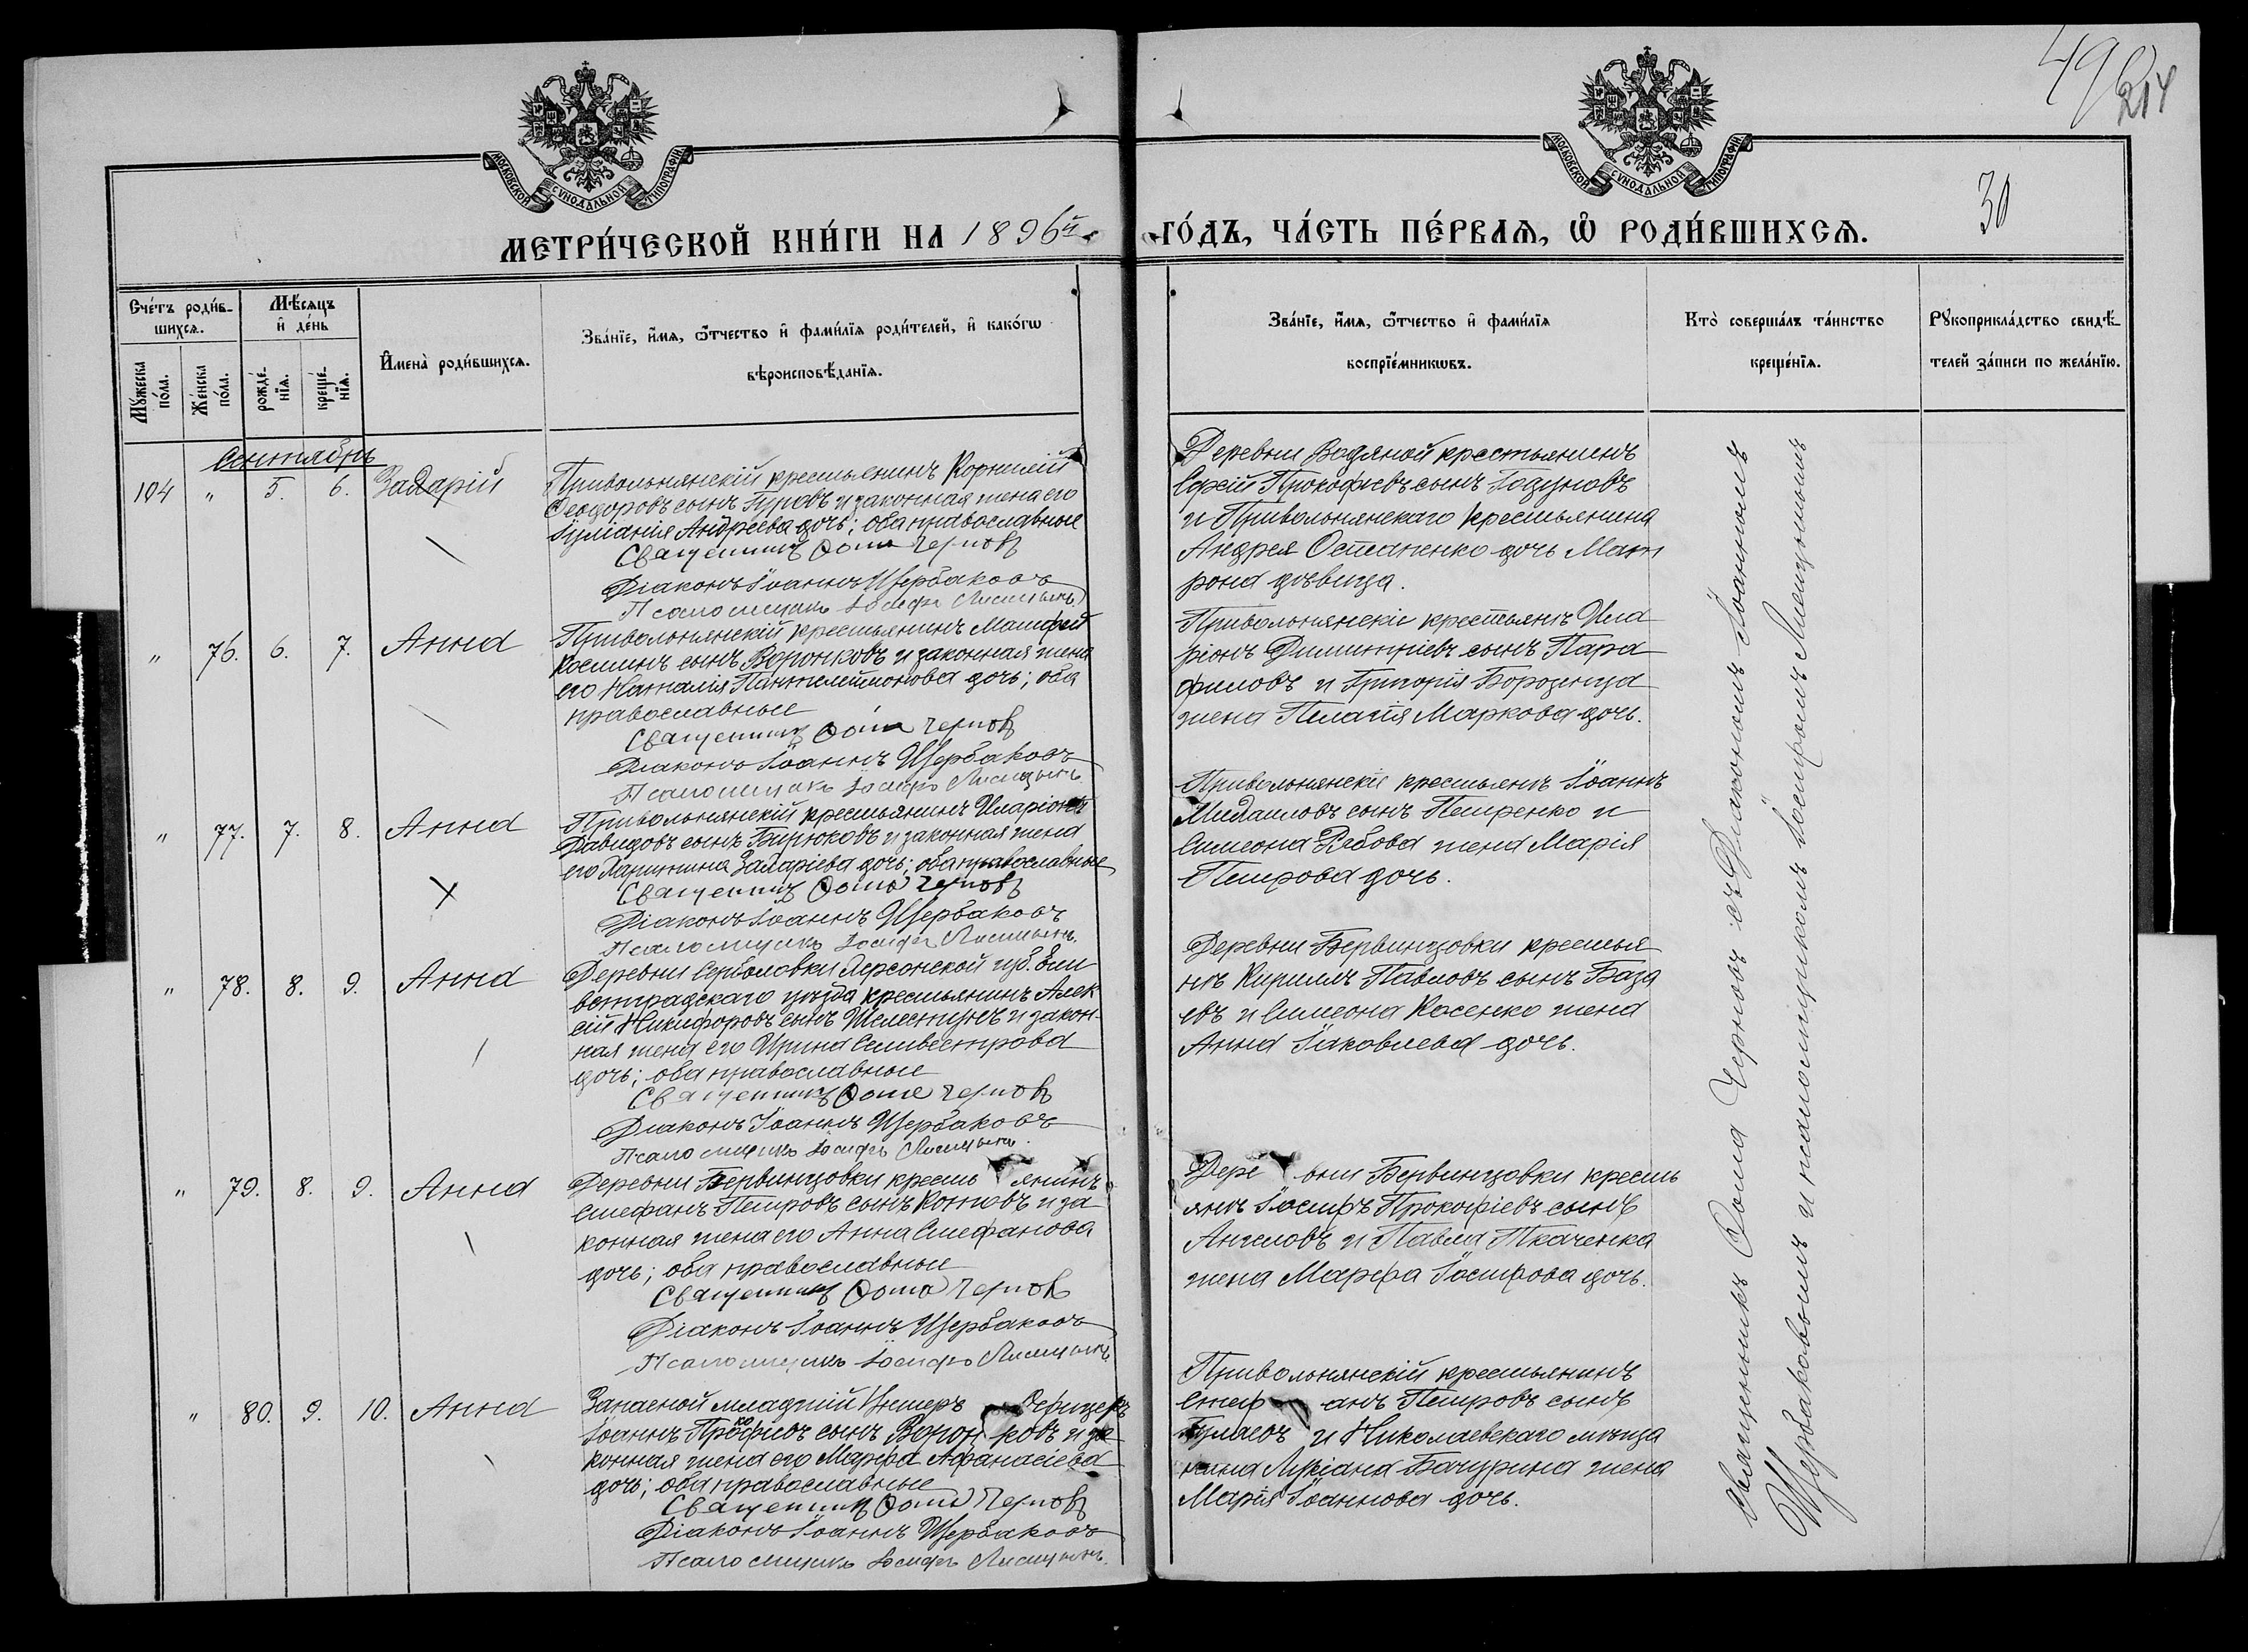 49
214
30
МОСКОВСКОЙ СѴНОДАЛЬНОЙ ТИПОГРАФІИ
МОСКОВСКОЙ СѴНОДАЛЬНОЙ ТИПОГРАФІИ
МЕТРИ́ЧЕСКОЙ КНИ́ГИ НА 1896й
ГО́ДЪ, ЧА́СТЬ ПЕ́РВАѦ, Ѽ РОДИ́ВШИХСѦ.
Сче́тъ роди́в-
шихсѧ.
Мꙋ́жеска
по́ла.
Же́нска
по́ла.
Мѣ́сѧцъ
и҆ де́нь
рожде́-
нїѧ.
креще́-
нїѧ.
И҆мена̀ роди́вшихсѧ.
Зва́нїе, и҆́мѧ, ѻ҆́тчество и҆ фами́лїѧ роди́телей, и҆ како́гѡ
вѣроисповѣ́данїѧ.
Зва́нїе, и҆́мѧ, ѻ҆́тчество и҆ фами́лїѧ
воспрїе́мникѡвъ.
Кто̀ соверша́лъ та́инство
креще́нїѧ.
Рꙋкоприкла́дство свидѣ́-
телей за́писи по жела́нїю.
Сентябрь
104 " 5. 6. Захарій
Привольнянскій крестьянинъ Корнилій
Ѳеодоровъ сынъ Гуровъ и законная жена его
Іуліанія Андреева дочь; оба православные
Священникъ Ѳома Черновъ
Діаконъ Іоаннъ Щербаковъ
Псаломщикъ Іосифъ Лисицынъ
Деревни Водяной крестьянинъ
Сергій Прокофіевъ сынъ Годуновъ
и Привольнянскаго крестьянина
Андрея Остапенко дочь Мат
рона дѣвица.
" 76. 6. 7. Анна
Привольнянскій крестьянинъ Матфей
Косминъ сынъ Воронковъ и законная жена
его Наталія Пантелеимонова дочь; оба
православные
Священникъ Ѳома Черновъ
Діаконъ Іоаннъ Щербаковъ
Псаломщикъ Іосифъ Лисицынъ
Привольнянскіе крестьянъ Ила
ріонъ Димитріевъ сынъ Пара
филовъ и Григорія Борозенца
жена Пелагія Маркова дочь.
" 77. 7. 8. Анна
Привольнянскій крестьянинъ Иларіонъ
Давидовъ сынъ Бирюковъ и законная жена
его Харитина Захаріева дочь; оба православные
Священникъ Ѳома Черновъ
Діаконъ Іоаннъ Щербаковъ
Псаломщикъ Іосифъ Лисицынъ.
Привольнянскіе крестьянъ Іоаннъ
Михаиловъ сынъ Петренко и
Симеона Рябова жена Марія
Петрова дочь.
" 78. 8. 9. Анна
Деревни Херсонской губ. Ели
ветградскаго уѣзда крестьянинъ Алек
сій Никифоровъ сынъ Шелестунъ и закон-
ная жена его Ирина Селивестрова
дочь; оба православные
Священникъ Ѳома Черновъ
Діаконъ Іоаннъ Щербаковъ
Псаломщикъ Іосифъ Лисицынъ.
Деревни Бервинцовки крестья
нъ Кириллъ Павловъ сынъ База
евъ и Симеона Косенко жена
Анна Іаковлева дочь.
" 79. 8. 9. Анна
Деревни Бервинцовки кресть янинъ
Стефанъ Петровъ сынъ Котовъ и за
конная жена его Анна Стефанова
дочь; оба православные
Священникъ Ѳома Черновъ
Діаконъ Іоаннъ Щербаковъ
Псаломщикъ Іосифъ Лисицынъ
Дере вни Бервинцовки кресть
янъ Іосифъ Прокофіевъ сынъ
Ангеловъ и Павла Ткаченка
жена Марфа Іосифова дочь.
" 80. 9. 10. Анна
Запасной младшій Унтеръ Офицеръ
Іоаннъ Прокофіевъ сынъ Ворон ковъ и за
конная жена его Марфа Афанасіева
дочь; оба православные
Священникъ Ѳома Черновъ
Діаконъ Іоаннъ Щербаковъ
Псаломщикъ Іосифъ Лисицынъ.
Привольнянскій крестьянинъ
Стеф анъ Петровъ сынъ
Гулаевъ и Николаевскаго мѣща
нина Лукіана Бачурина жена
Марія Іоаннова дочь.
Священникъ Ѳома Черновъ съ Діакономъ Іоанномъ
Щербаковымъ и псаломщикомъ Іосифомъ Лисицынымъ